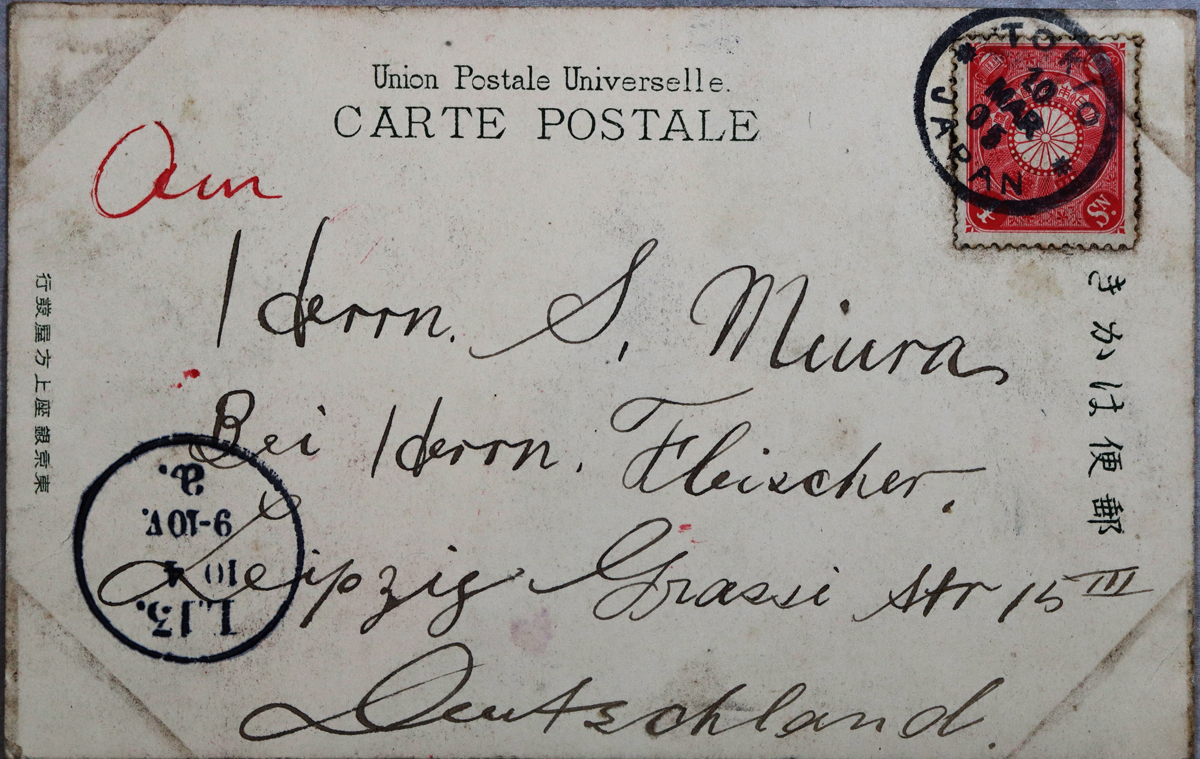 Union Postale Universelle.
CARTE POSTALE
TOKYO
10
MAR
05
JAPAN
Am
Herrn. S. Miura
Bei Herrn. Fleischer.
Leipzig Grassi Str 15 III
Deutschland.
きかは便郵
行發屋方上座銀京東
L.13.
10 4
9-10V.
a.
4